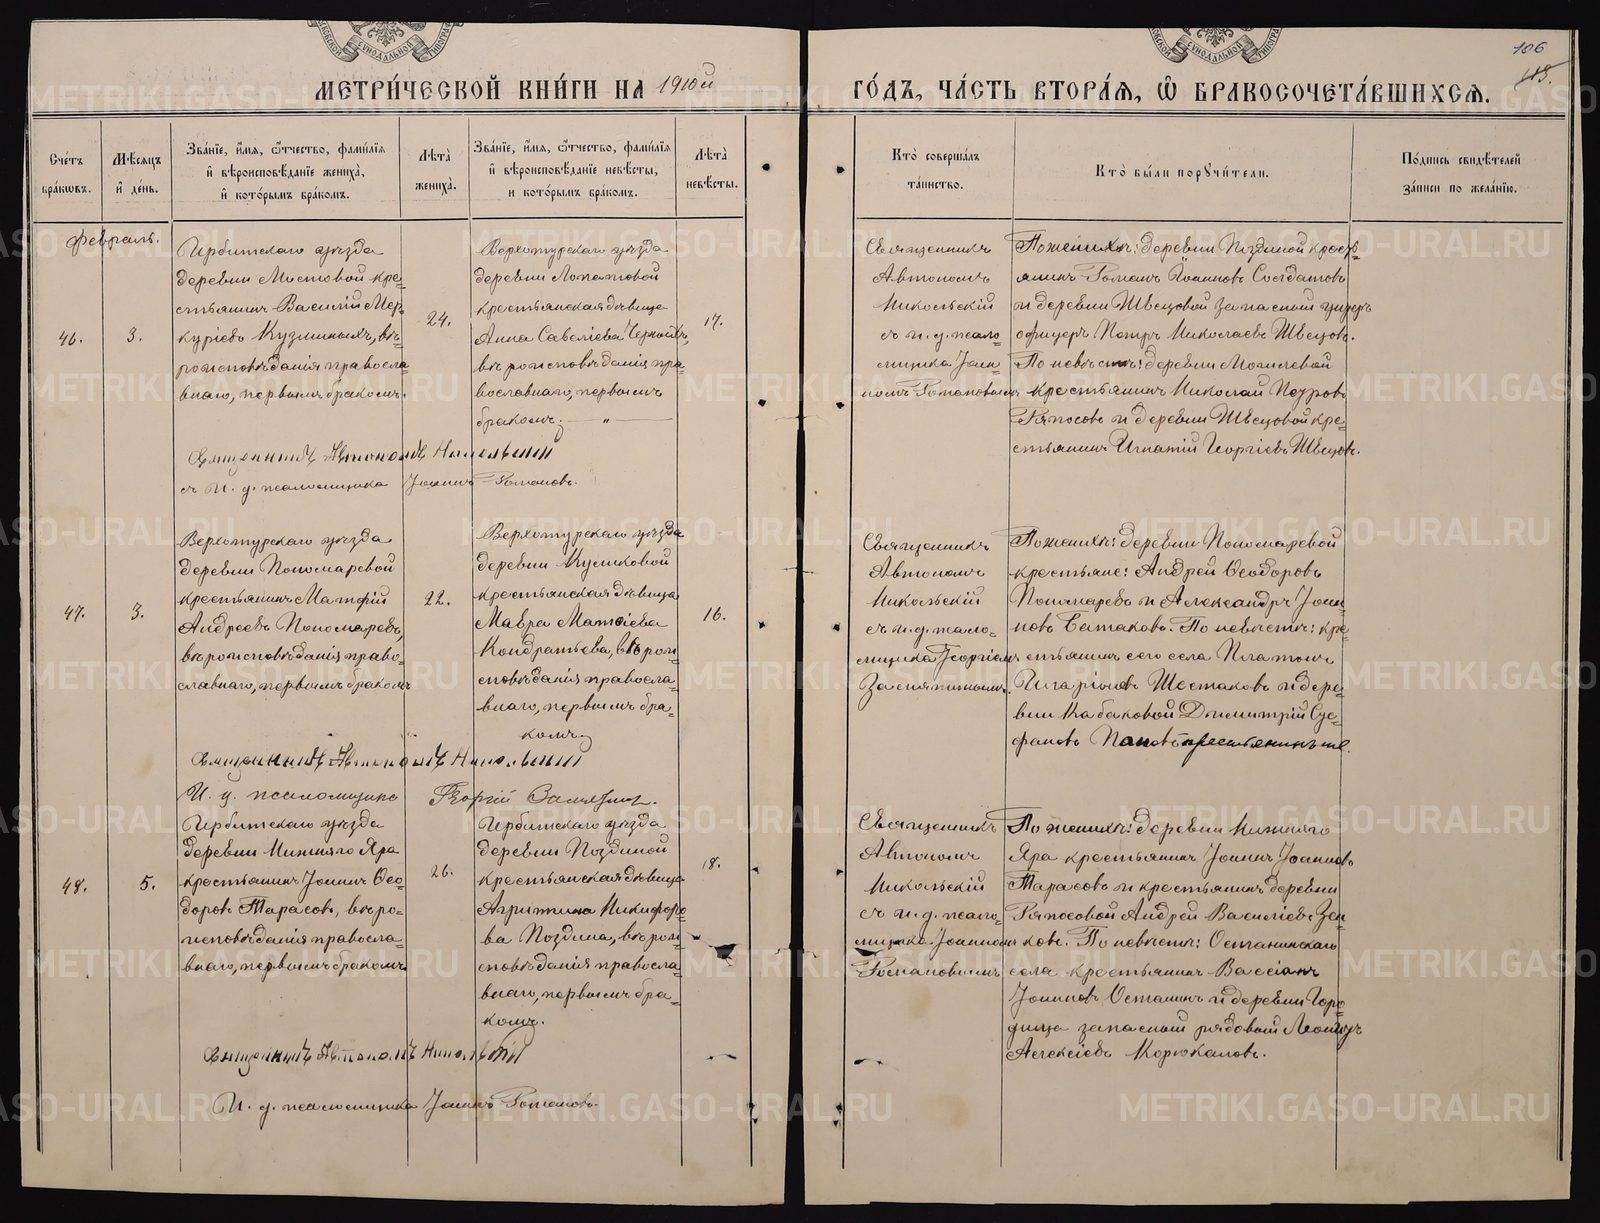 МЕТРИ́ЧЕСКОЙ КНИ́ГИ НА 1910й
ГО́ДЪ, ЧА́СТЬ ВТОРА́Я, Ѽ БРАКОСОЧЕТА́ВШИХСЯ.
106
Сче́тъ бра́ковъ.
Мѣ́сяцъ и҆ де́нь.
Зва́нїе, и҆́мя, ѻ҆́тчество, фами́лїя и҆ вѣроисповѣ́данїе жениха̀, и҆ кото́рымъ бра́комъ.
Лѣта̀ жениха̀.
Зва́нїе, и҆́мя, ѻ҆́тчество, фами́лїя и҆ вѣроисповѣ́данїе невѣ́сты, и кото́рымъ бра́комъ.
Лѣта̀ невѣ́сты.
Кто̀ соверша́лъ та́инство.
Кто̀ бы́ли порꙋчи́тели.
По́дпись свидѣ́телей за́писи по жела́нїю.
Февраль.
46.
3.
Ирбитскаго уѣзда
деревни Мостовой кре-
стьянинъ Василій Мер-
куріевъ Кузминыхъ, вѣ-
роисповѣданія правосла-
внаго, первымъ бракомъ.
24.
Верхотурскаго уѣзда
деревни Лопатовой
крестьянская дѣвица
Анна Савеліева Черныхъ,
вѣроисповѣданія пра-
вославнаго, первымъ
бракомъ.
17.
Священникъ
Автономъ
Никольскій
съ и. д. псало-
мщика Іоан-
номъ Романовымъ
По женихѣ: деревни Поздиной кресть-
янинъ Романъ Іоанновъ Солдатовъ
и деревни Швецовой запасный унтеръ
офицеръ Петръ Николаевъ Швецовъ.
По невѣстѣ: деревни Могилевой
крестьянинъ Николай Петровъ
Ряпосовъ и деревни Швецовой кре-
стьянинъ Игнатій Георгіевъ Швецовъ.
Священникъ Автономъ Никольскій
съ и. д. псаломщика Іоаннъ Романовъ.
47.
3.
Верхотурскаго уѣзда
деревни Пономаревой
крестьянинъ Матфій
Андреевъ Пономаревъ,
вѣроисповѣданія право-
славнаго, первымъ бракомъ
22.
Верхотурскаго уѣзда
деревни Куликовой
крестьянская дѣвица
Мавра Матѳіева
Кондратьева, вѣрои-
сповѣданія правосла-
внаго, первымъ бра-
комъ.
16.
Священникъ
Автономъ
Никольскій
съ и. д. псало-
мщика Георгіемъ
По женихѣ: деревни Пономаревой
крестьяне: Андрей Ѳеодоровъ
Пономаревъ и Александръ Іоан-
новъ Батаковъ. По невѣстѣ: кре-
стьянинъ сего села Платонъ
Иларіоновъ Шестаковъ и дере-
вни Кабаковой Димитрій Сте-
фановъ Пановъ
Священникъ Автономъ Никольскій
И. д. псаломщика Георгій
48.
5.
Ирбитскаго уѣзда
деревни Нижняго Яра
крестьянинъ Іоаннъ Ѳео-
доровъ Тарасовъ, вѣро-
исповѣданія правосла-
внаго, первымъ бракомъ.
26.
Ирбитскаго уѣзда
деревни Поздиной
крестьянская дѣвица
Агриппина Никифоро-
ва Поздина, вѣрои-
сповѣданія правосла-
внаго, первымъ бра-
комъ.
18.
Священникъ
Автономъ
Никольскій
съ и. д. псало-
мщика Іоанномъ
Романовымъ
По женихѣ: деревни Нижняго
Яра крестьянинъ Іоаннъ Іоанновъ
Тарасовъ и крестьянинъ деревни
Ряпосовой Андрей Василіевъ Зен-
ковъ. По невѣстѣ: Останинскаго
села крестьянинъ Вассіанъ
Іоанновъ Останинъ и деревни Горо-
дища запасный рядовой Леонидъ
Алексіевъ Корюкаловъ.
Священникъ Автономъ Никольскій
И. д. псаломщика Іоаннъ Романовъ.
METRIKI.GASO-URAL.RU